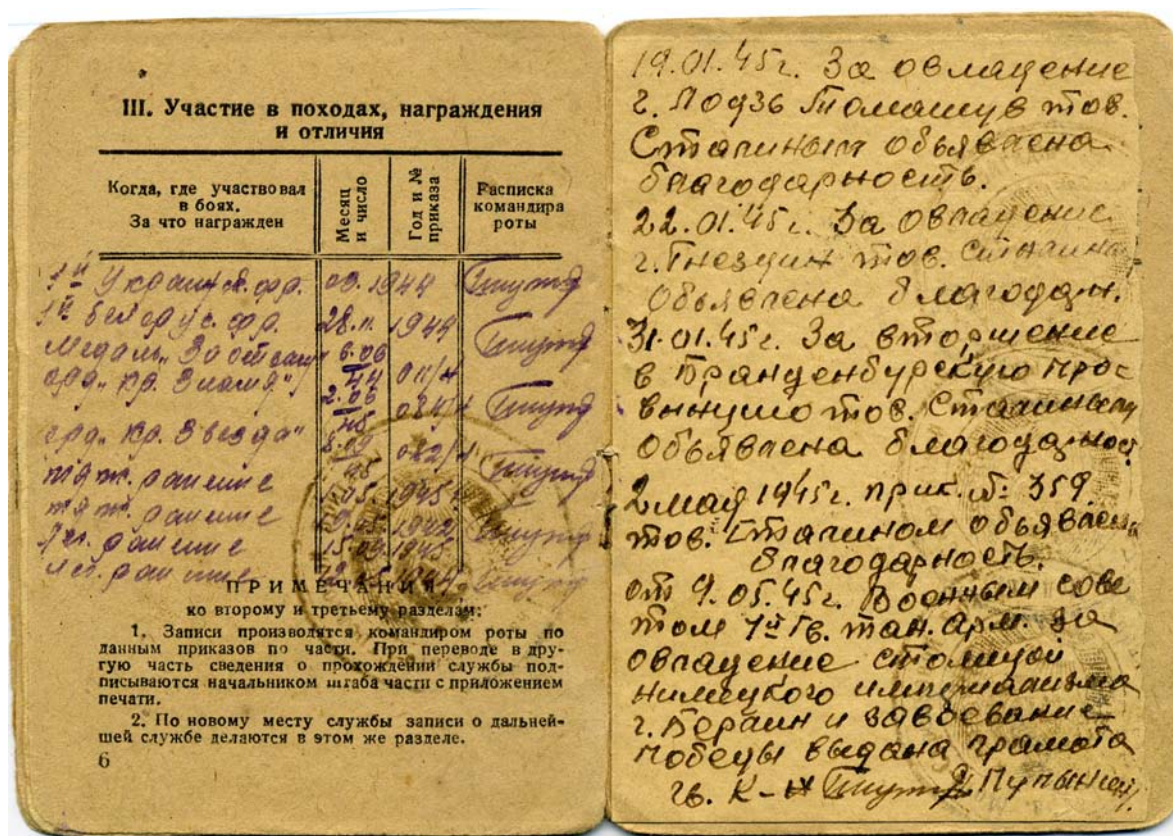 III. Участие в походах, награждения
и отличия
Когда, где участвовал
в боях.
За что награжден
Месяц
и число
Год и №
приказа
Расписка
командира
роты
1й Украинск. фр. 09. 1944
1й белорус. фр. 28.11. 1944
медаль „За отвагу” 6.06 44 011/н
орд. „Кр. Знамя” 2.06 45
орд. „Кр. Звезда” 45
тяж. ранение 05 1945
тяж. ранение 1942
лег. ранение 15.03 1945
лег. ранение
ПРИМЕЧАНИЯ
ко второму и третьему разделам:
1. Записи производятся командиром роты по
данным приказов по части. При переводе в дру-
гую часть сведения о прохождении службы под-
писываются начальником штаба части с приложением
печати.
2. По новому месту службы записи о дальней-
шей службе делаются в этом же разделе.
6
19.01.45г. За овладение
г. Лодзь Томашув тов.
Сталиным объявлена
благодарность.
22.01.45г. За овладение
г. Гнездин тов. Сталиным
объявлена благодарн.
31.01.45г. За вторжение
в Бранденбургскую про-
винцию тов. Сталиным
объявлена благодарност
2 мая 1945г. прик. №: 359.
тов. Сталином объявлен
благодарность.
от 9.05.45г. Военным сове
том 1й Гв. тан. арм. за
овладение столицой
нимецкого империализма
г. Берлин и завоевание
победы выдана грамота
гв. к-н